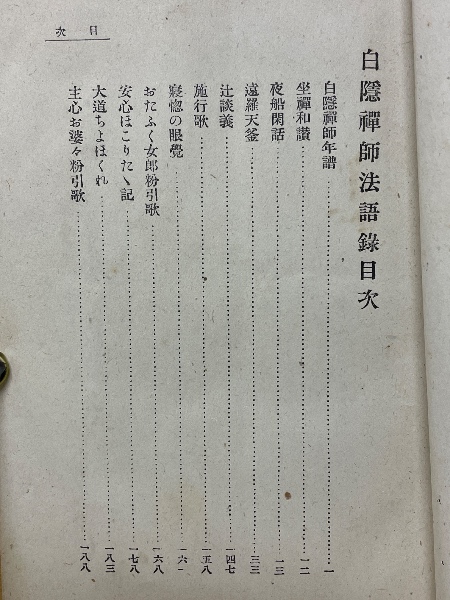 目次
白隱禪師法語錄目次
白隱禪師年譜……一
坐禪和讃……一二
夜船閑話……一三
遠羅天釜……三三
辻談義……一四七
施行歌……一五八
寢惚の眼覺……一六一
おたふく女郎粉引歌……一六八
安心ほこりたゝ記……一七八
大道ちよぼくれ……一八三
主心お婆々粉引歌……一八八